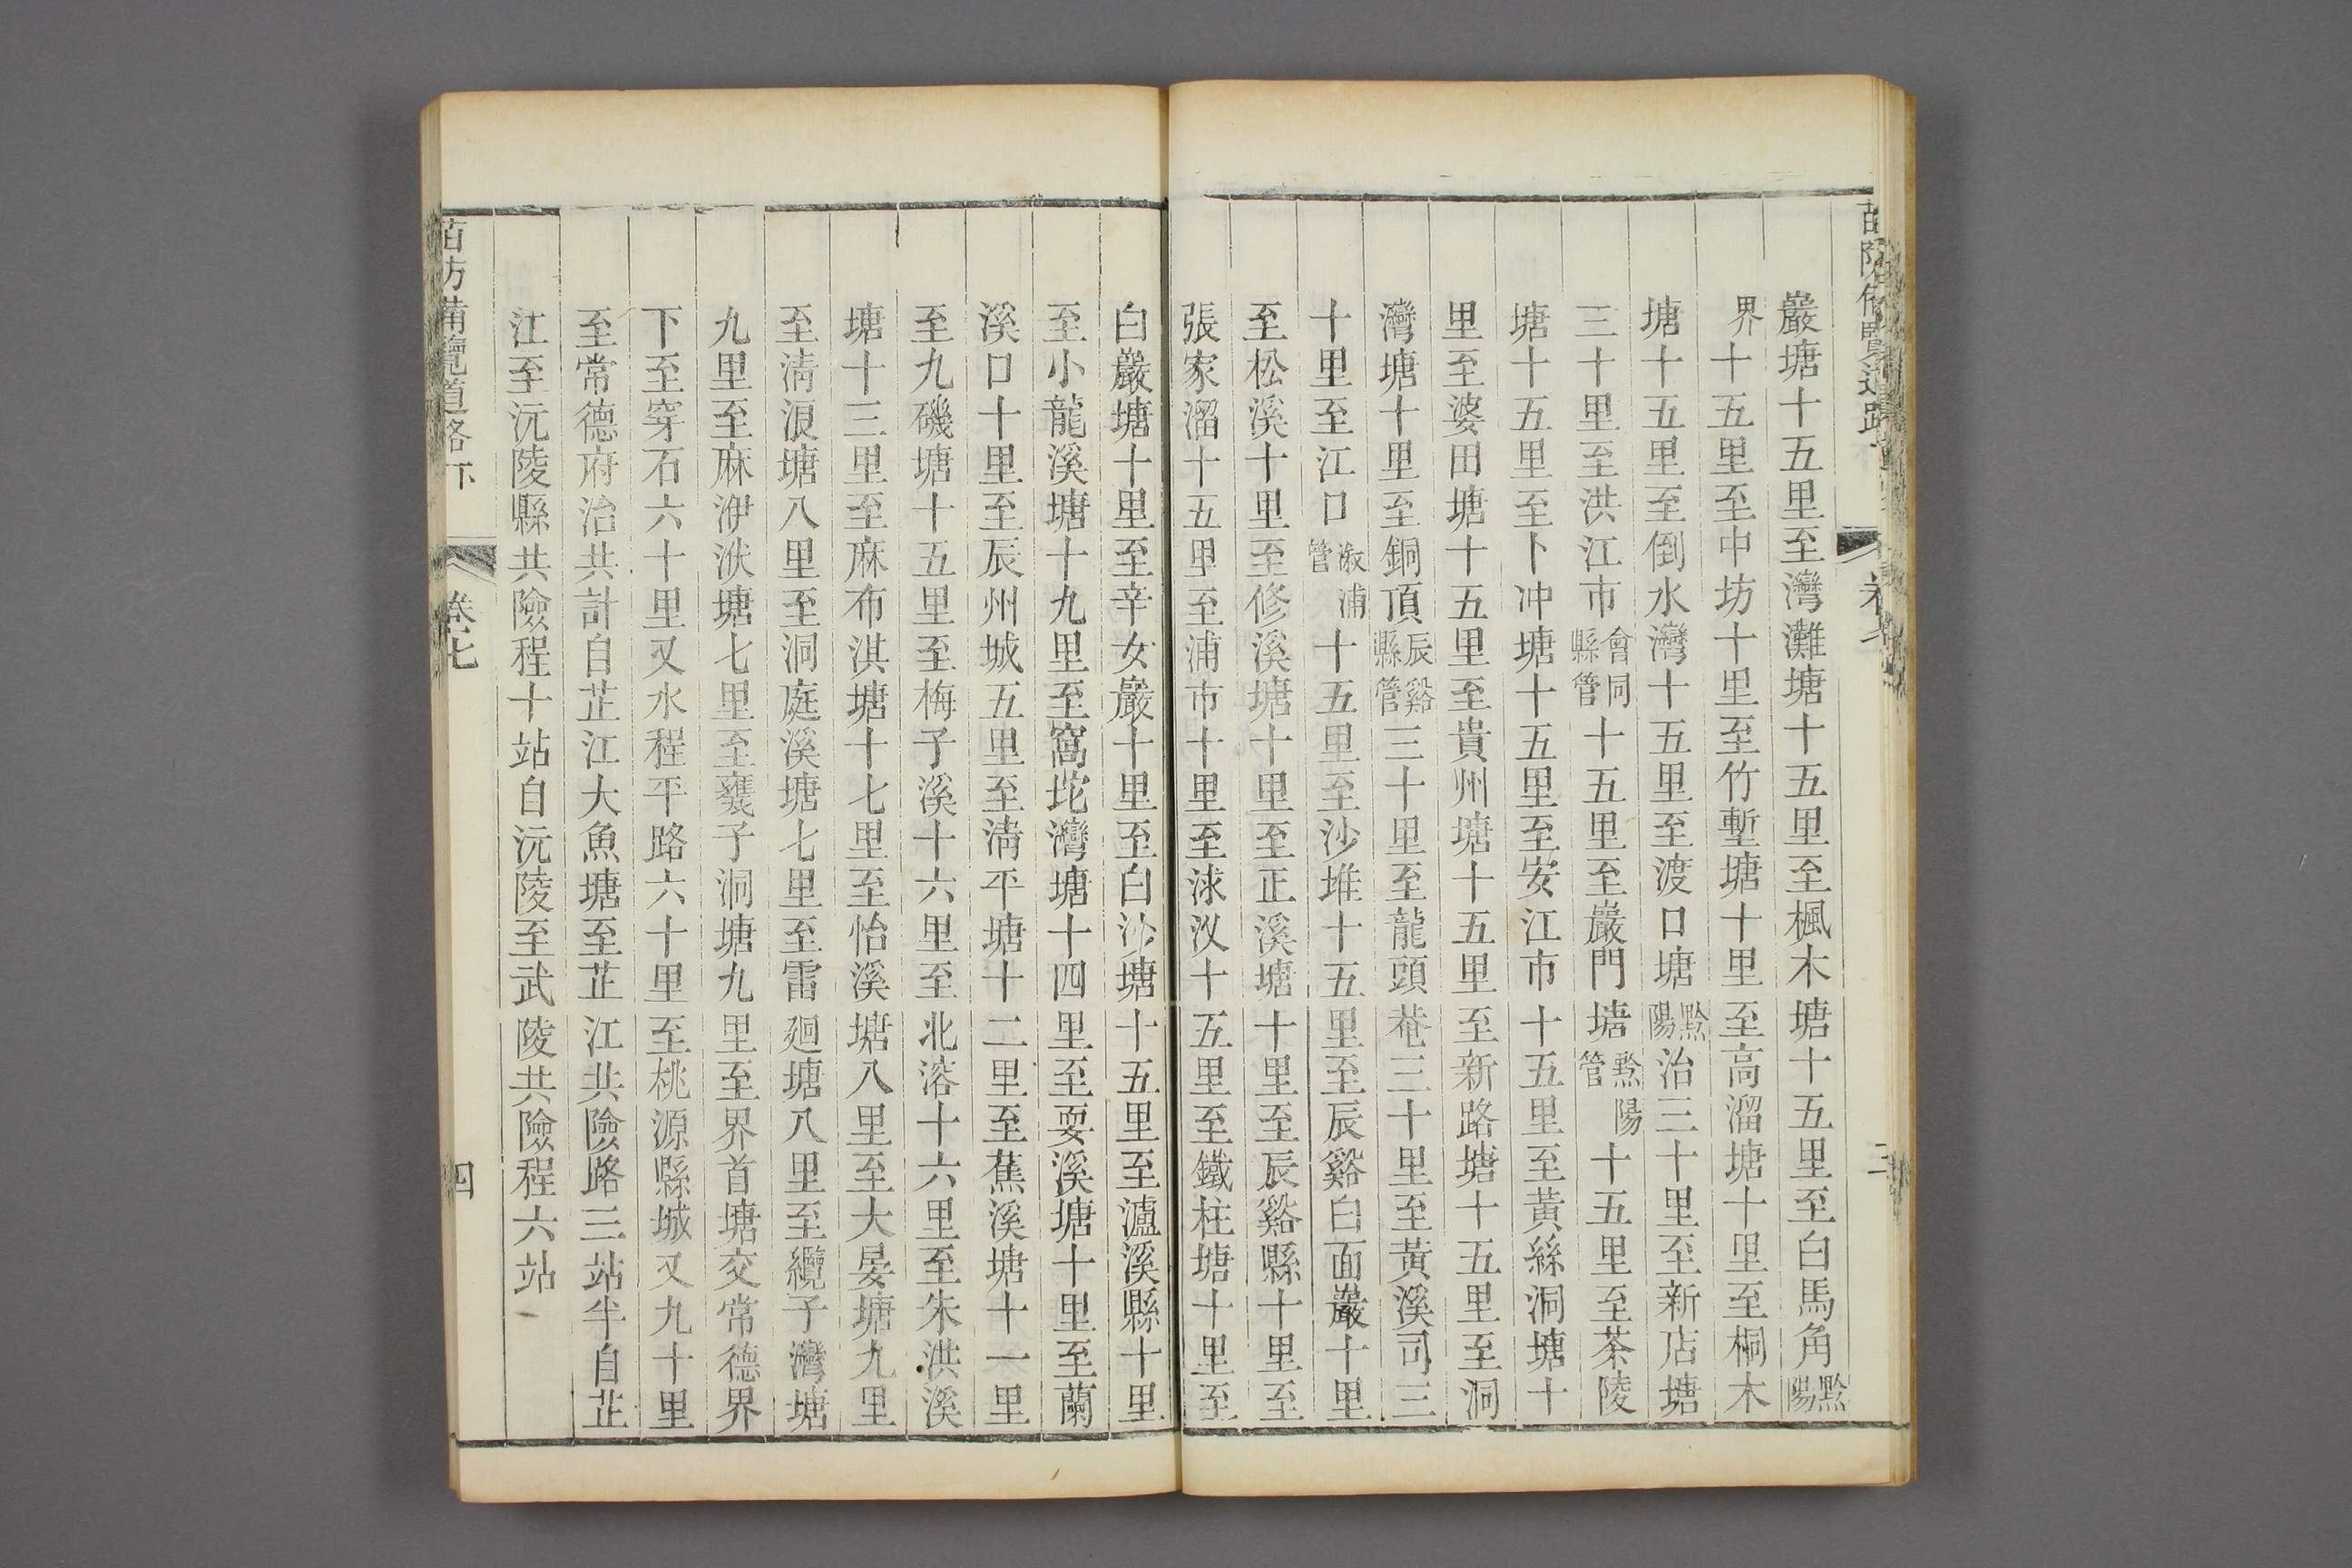 巖塘十五里至灣灘塘十五里至楓木塘十五里至白馬角黔陽
界十五里至中坊十里至竹塹塘十里至高溜塘十里至桐木
塘十五里至倒水灣十五里至渡口塘黔陽治三十里至新店塘
三十里至洪江市會同縣管十五里至巖門塘黔陽管十五里至茶陵
塘十五里至卜冲塘十五里至安江市十五里至黃絲洞塘十
里至婆田塘十五里至貴州塘十五里至新路塘十五里至洞
灣塘十里至銅頂辰谿縣管三十里至龍頭菴三十里至黃溪司三
十里至江口溆浦管十五里至沙堆十五里至辰谿白面巖十里
至松溪十里至修溪塘十里至正溪塘十里至辰谿縣十里至
張家溜十五里至浦市十里至浗汊十五里至鐵柱塘十里至
白巖塘十里至辛女巖十里至白沙塘十五里至瀘溪縣十里
至小龍溪塘十九里至窩坨灣塘十四里至耍溪塘十里至蘭
溪口十里至辰州城五里至清平塘十二里至蕉溪塘十一里
至九磯塘十五里至梅子溪十六里至北溶十六里至朱洪溪
塘十三里至麻布淇塘十七里至怡溪塘八里至大晏塘九里
至清浪塘八里至洞庭溪塘七里至雷廻塘八里至纜子灣塘
九里至麻洢洑塘七里至甕子洞塘九里至界首塘交常德界
下至穿石六十里又水程平路六十里至桃源縣城又九十里
至常德府治共計自芷江大魚塘至芷江共險路三站半自芷
江至沅陵縣共險程十站自沅陵至武陵共險程六站
苗防備覽道路下 卷七 四